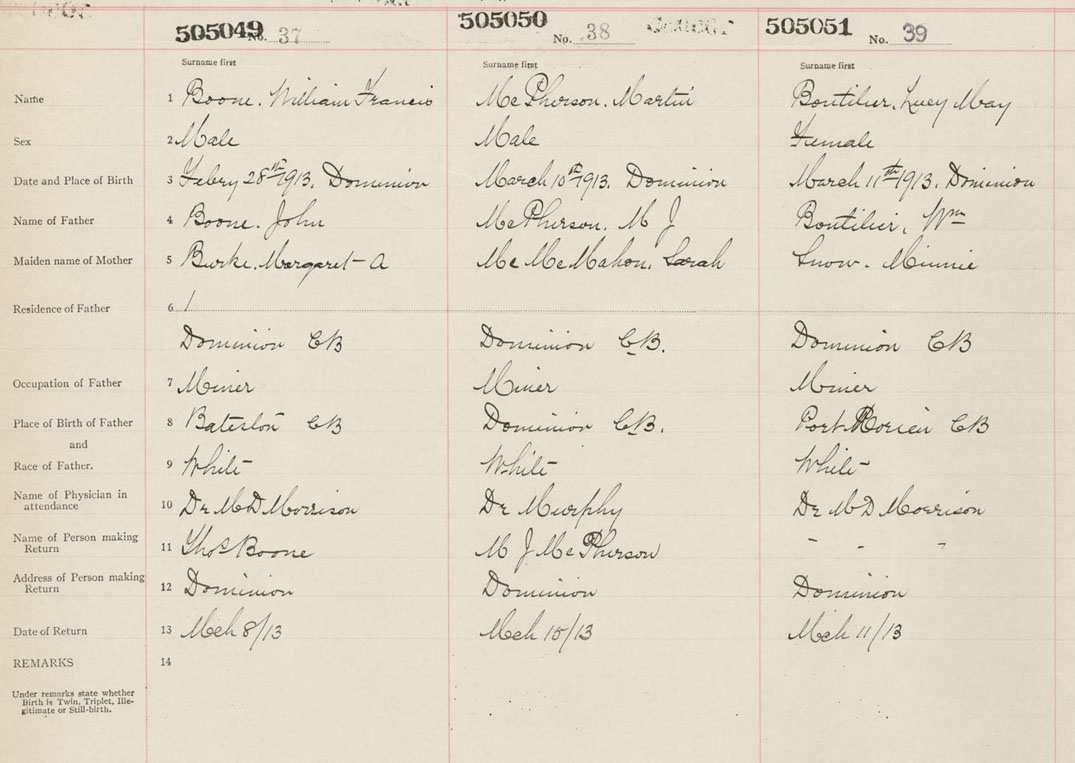 505049 No. 37 505050 No. 38 505051 No. 39
Surname first Surname first Surname first
Name 1 Boone. William Francis McPherson. Martin Boutilier, Lucy May
Sex 2 Male Male Female
Date and Place of Birth 3 Febry 28th 1913. Dominion March 10th 1913. Dominion March 11th 1913. Dominion
Name of Father 4 Boone. John McPherson. M J Boutilier, Wm
Maiden name of Mother 5 Burke, Margaret A Mc McMahon. Sarah Snow. Minnie
Residence of Father 6
Dominion CB Dominion C.B. Dominion CB
Occupation of Father 7 Miner Miner Miner
Place of Birth of Father 8 Bateston CB Dominion C.B. Port Morien CB
and
Race of Father. 9 White White White
Name of Physician in
attendance 10 Dr McD Morrison Dr Murphy Dr McD Morrison
Name of Person making
Return 11 Thos Boone M J McPherson - - -
Address of Person making
Return 12 Dominion Dominion Dominion
Date of Return 13 Mch 8/13 Mch 15/13 Mch 11/13
REMARKS 14
Under remarks state whether
Birth is Twin, Triplet, Ille-
gitimate or Still-birth.